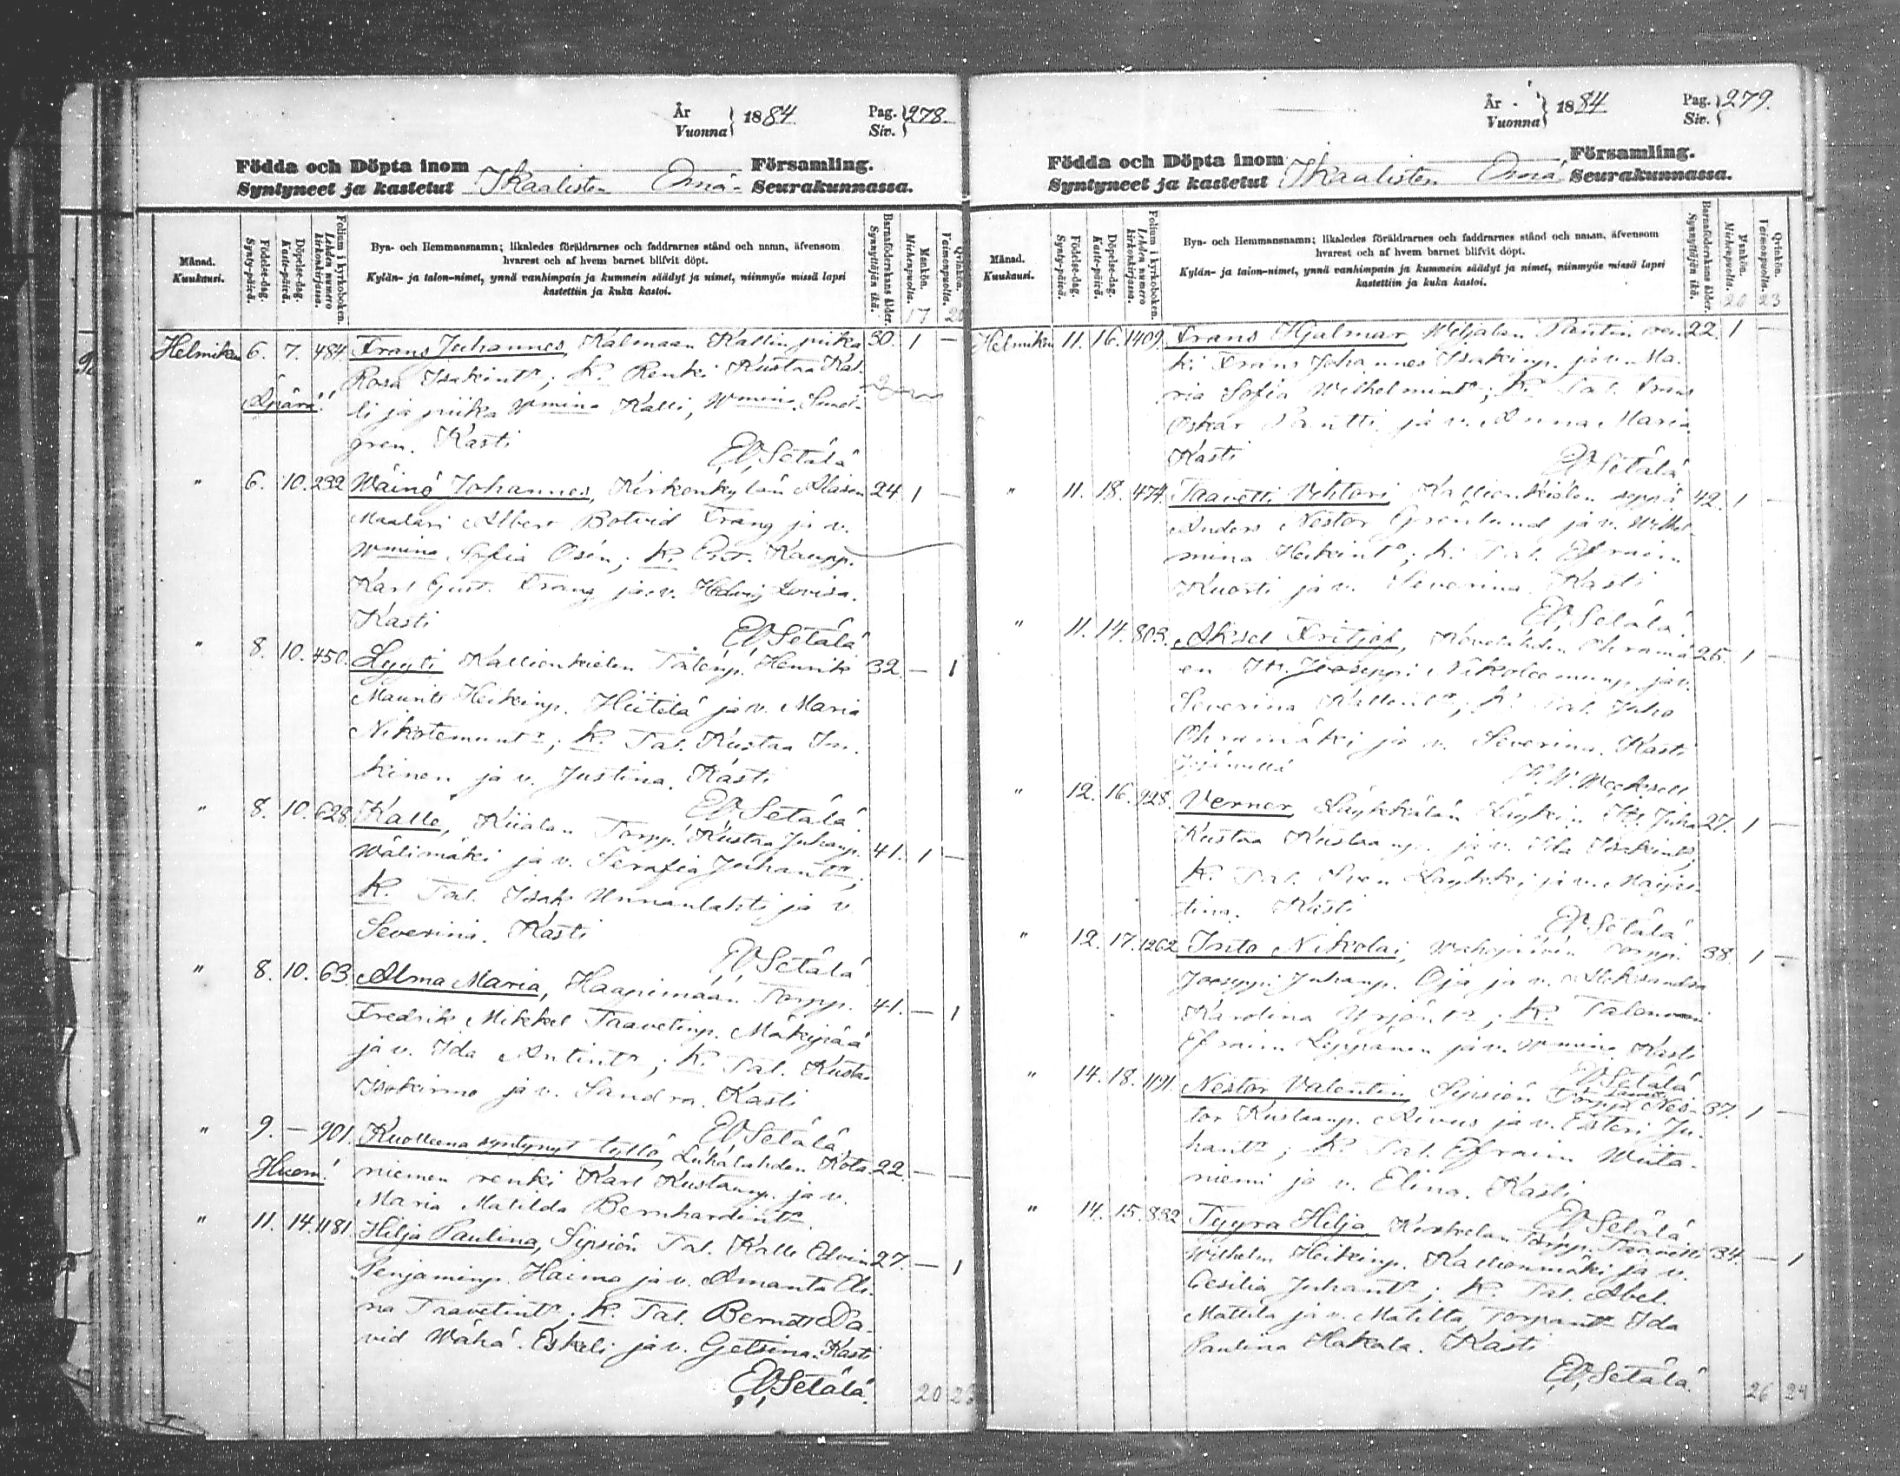 År Vuonna 1884. Pag. Siv. 278.
Födda och Döpta inom Församling.
Syntyneet ja kastetut Ikaalisten Emä- Seurakunnassa.
Månad. Kuukausi.
Födelse-dag. Synty-päivä.
Döpelse-dag. Kaste-päivä.
Folium i kyrkoboken. Lehden numero kirkonkirjassa.
Bya- och Hemmansnamn; likaledes föräldrarnes och faddrarnes stånd och namn, äfvensom
hvarest och af hvem barnet blifvit döpt.
Kylän- ja talon-nimet, ynnä vanhimpain ja kummein säädyt ja nimet, niinmyös missä lapsi
kastettiin ja kuka kastoi.
Barnaföderskans ålder. Synnyttäjän ikä.
Mankön. Miehenpuolta. 17
Qvinkön. Vaimonpuolta. 20
Helmikuu 6. 7. 484 Frans Juhannes, Kalmaan Kallin piika 30. 1 —
Rosa Isakint; K. Renki Kustaa Kal-
Äpärä! li ja piika Wmina Kalli, Wmina Sund-
gren. Kasti
EV Setälä
" 6. 10. 232 Wäinö Johannes, Kirkonkylän Alasen 24. 1 —
Maalari Albert Botvid Frang ja v.
Wmina Sofia Osén; K. Ent. Kaupp.
Karl Gust. Frang ja v. Hedvig Lovisa.
Kasti
EV Setälä
" 8. 10. 450. Lyyti Kallionkielen Talonp. Henrik 32. — 1
Maurits Heikinp. Hiitelä ja v. Maria
Nikotemunt; K. Tal. Kustaa In-
kinen ja v. Justina. Kasti
EV Setälä.
" 8. 10. 628. Kalle, Kiialan Torpp. Kustaa Juhanp. 41. 1 —
Wälimäki ja v. Serafia Juhant;
K. Tal. Isak Unnanlahti ja v
Severina. Kasti
EV Setälä
" 8. 10. 63. Alma Maria, Haapimaan Torpp. 41. — 1
Fredrik Mikkel Taavetinp. Mäkipää
ja v. Ida Antint; K. Tal. Kusta
Isokirmo ja v. Sandra. Kasti
EV Setälä.
" 9. — 901. Kuolleena syntynyt tyttö, Luhalahden Kota 22 — —
Huom! niemen renki Karl Kustaanp. ja v.
Maria Matilda Bernhardint.
" 11. 14. 1181. Hilja Paulina, Sipsiön Tal. Kalle Edvin 27. — 1
Benjaminp. Haima ja v. Amanta Eli-
na Taavetint; K. Tal. Berndt Da-
vid Wähä-Eskeli ja v. Getsina. Kasti
EV Setälä.
20 23
År Vuonna 1884 Pag. Siv. 279.
Födda och Döpta inom Församling.
Syntyneet ja kastetut Ikaalisten Emä Seurakunnassa.
Månad. Kuukausi.
Födelse-dag. Synty-päivä.
Döpelse-dag. Kaste-päivä.
Folium i kyrkoboken. Lehden numero kirkonkirjassa.
Bya- och Hemmansnamn; likaledes föräldrarnes och faddrarnes stånd och namn, äfvensom
hvarest och af hvem barnet blifvit döpt.
Kylän- ja talon-nimet, ynnä vanhimpain ja kummein säädyt ja nimet, niinmyös missä lapsi
kastettiin ja kuka kastoi.
Barnaföderskans ålder. Synnyttäjän ikä.
Mankön. Miehenpuolta. 20
Qvinkön. Vaimonpuolta. 23
Helmikuu 11. 16. 1409. Frans Hjalmar, Weljalan Pantin ren 22. 1 —
ki Frans Johannes Isakinp. ja v. Ma-
ria Sofia Wilhelmint; K. Tal. Frans
Oskar Pantti ja v. Anna Maria
Kasti
EV Setälä
" 11. 18. 474. Taavetti Vihtori, Kallionkielen seppä 42. 1 —
Anders Nestor Grönlund ja v. Wilhel-
mina Heikint; K. Tal. Efraim
Kuosti ja v. Severina. Kasti
EV Setälä.
" 11. 14. 803. Aksel Fritjof, Röverlahden Ohramä 25. 1 —
en It. Jooseppi Nikoteemunp. ja v.
Severina Kallent; K. Tal. Juho
Ohramäki ja v. Severina. Kasti
K. W. Weeksell
" 12. 16. 928. Verner, Läykkälän Läykin It. Juha 27. 1 —
Kustaa Kustaanp. ja v. Ida Isakint;
K. Tal. Sven Läykki ja v. Maijas-
tina. Kasti
EV Setälä
" 12. 17. 1262 Frito Nikolai, Wahojärven Torpp. 38. 1 —
Jooseppi Juhanp. Oja ja v. Aleksandra
Karolina Urjänt; K. Talonvari
Efraim Leppänen ja v. Wmina. Kasti
EV Setälä
" 14. 18. 1191. Nestor Valentin Sipsiön Torpp. Nes- 37. 1 —
tor Kustaanp. Aivus ja v. Esteri Ju-
hant; K. Tal. Efraim Wiita-
niemi ja v. Elina. Kasti
EV Setälä
" 14. 15. 832 Tyyra Hilja, Kiskelan Torpp. Taavetti 34. — 1
Wilhelm Heikinp. Kallionmäki ja v.
Cesilia Juhant; K. Tal. Abel
Mattila ja v. Matilta, torpant Ida
Paulina Hakala. Kasti
EV Setälä.
26 24